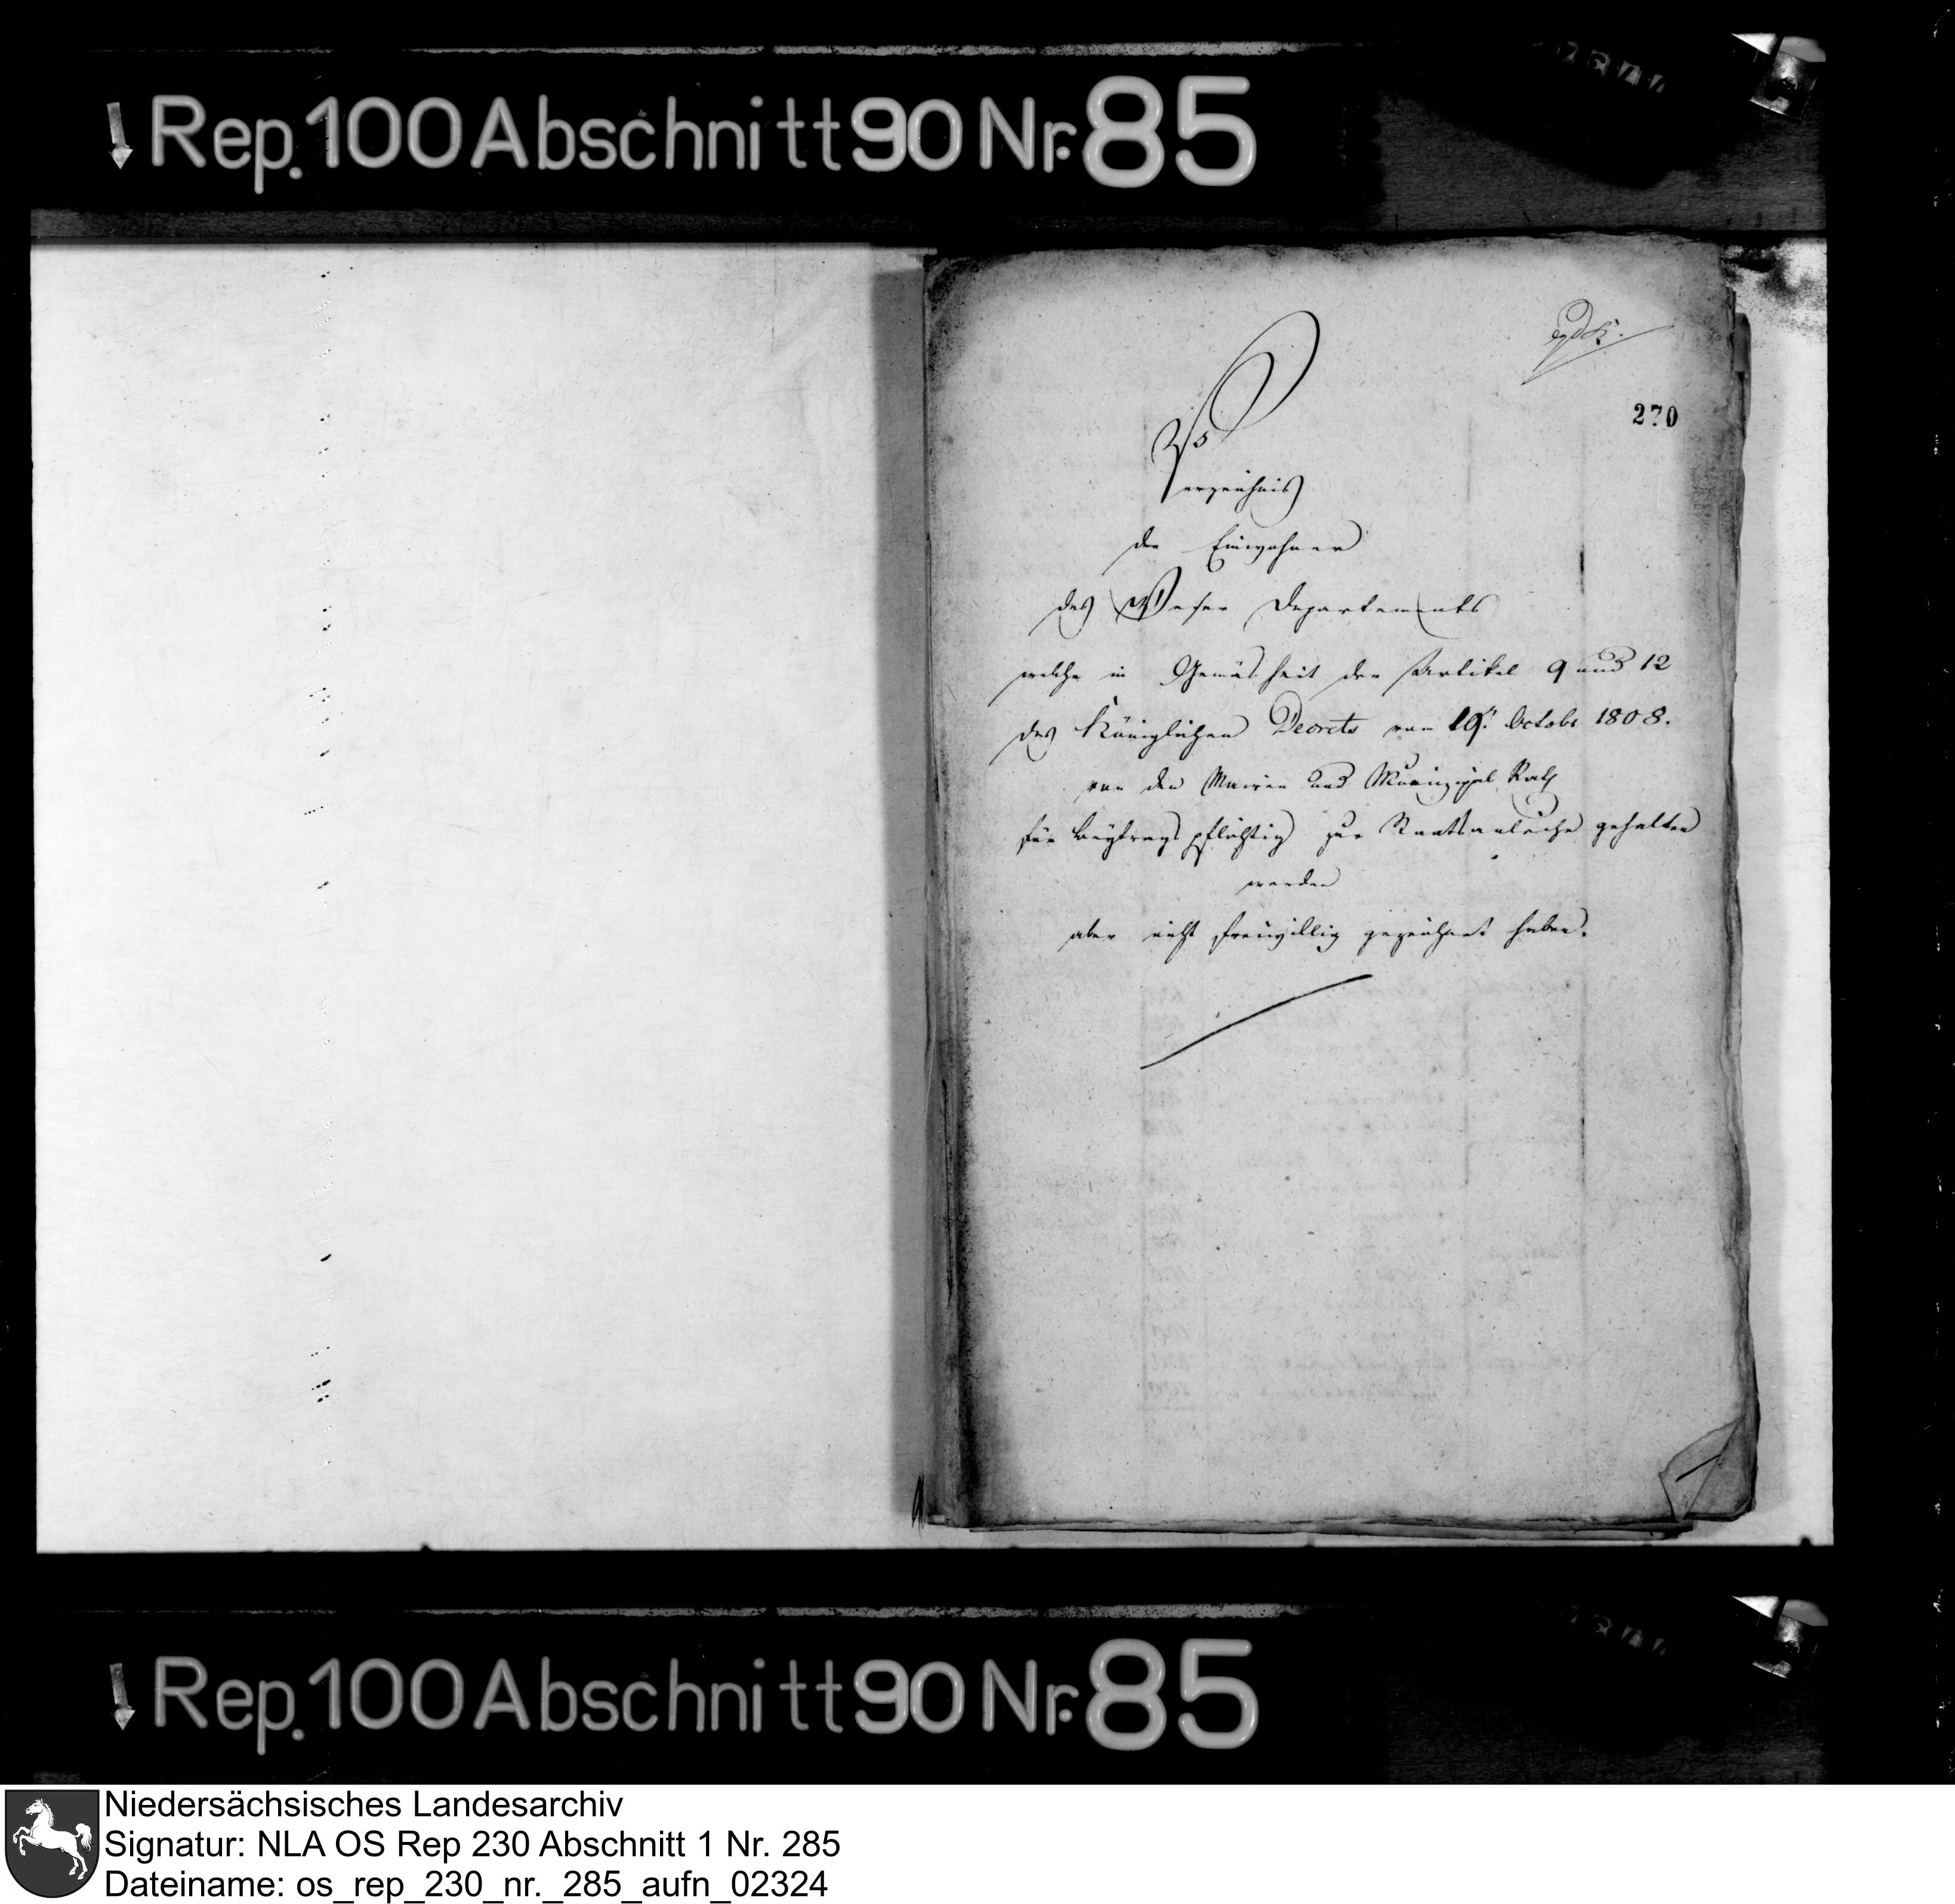 Rep. 100 Abschnitt 90 Nr. 85
270
Verzeichnis
der Einwohner
des Weser Departements
welche in Gemäsheit der Artikel 9 und 12
des Königlichen Decrets vom 19t. Octobr 1808.
von den Mairen und Municipal Rath
für beytrags pflichtig zur Staatsanleihe gehalten
werden
aber nicht freiwillig gezeichnet haben.
Rep. 100 Abschnitt 90 Nr. 85
Niedersächsisches Landesarchiv
Signatur: NLA OS Rep 230 Abschnitt 1 Nr. 285
Dateiname: os_rep_230_nr._285_aufn_02324